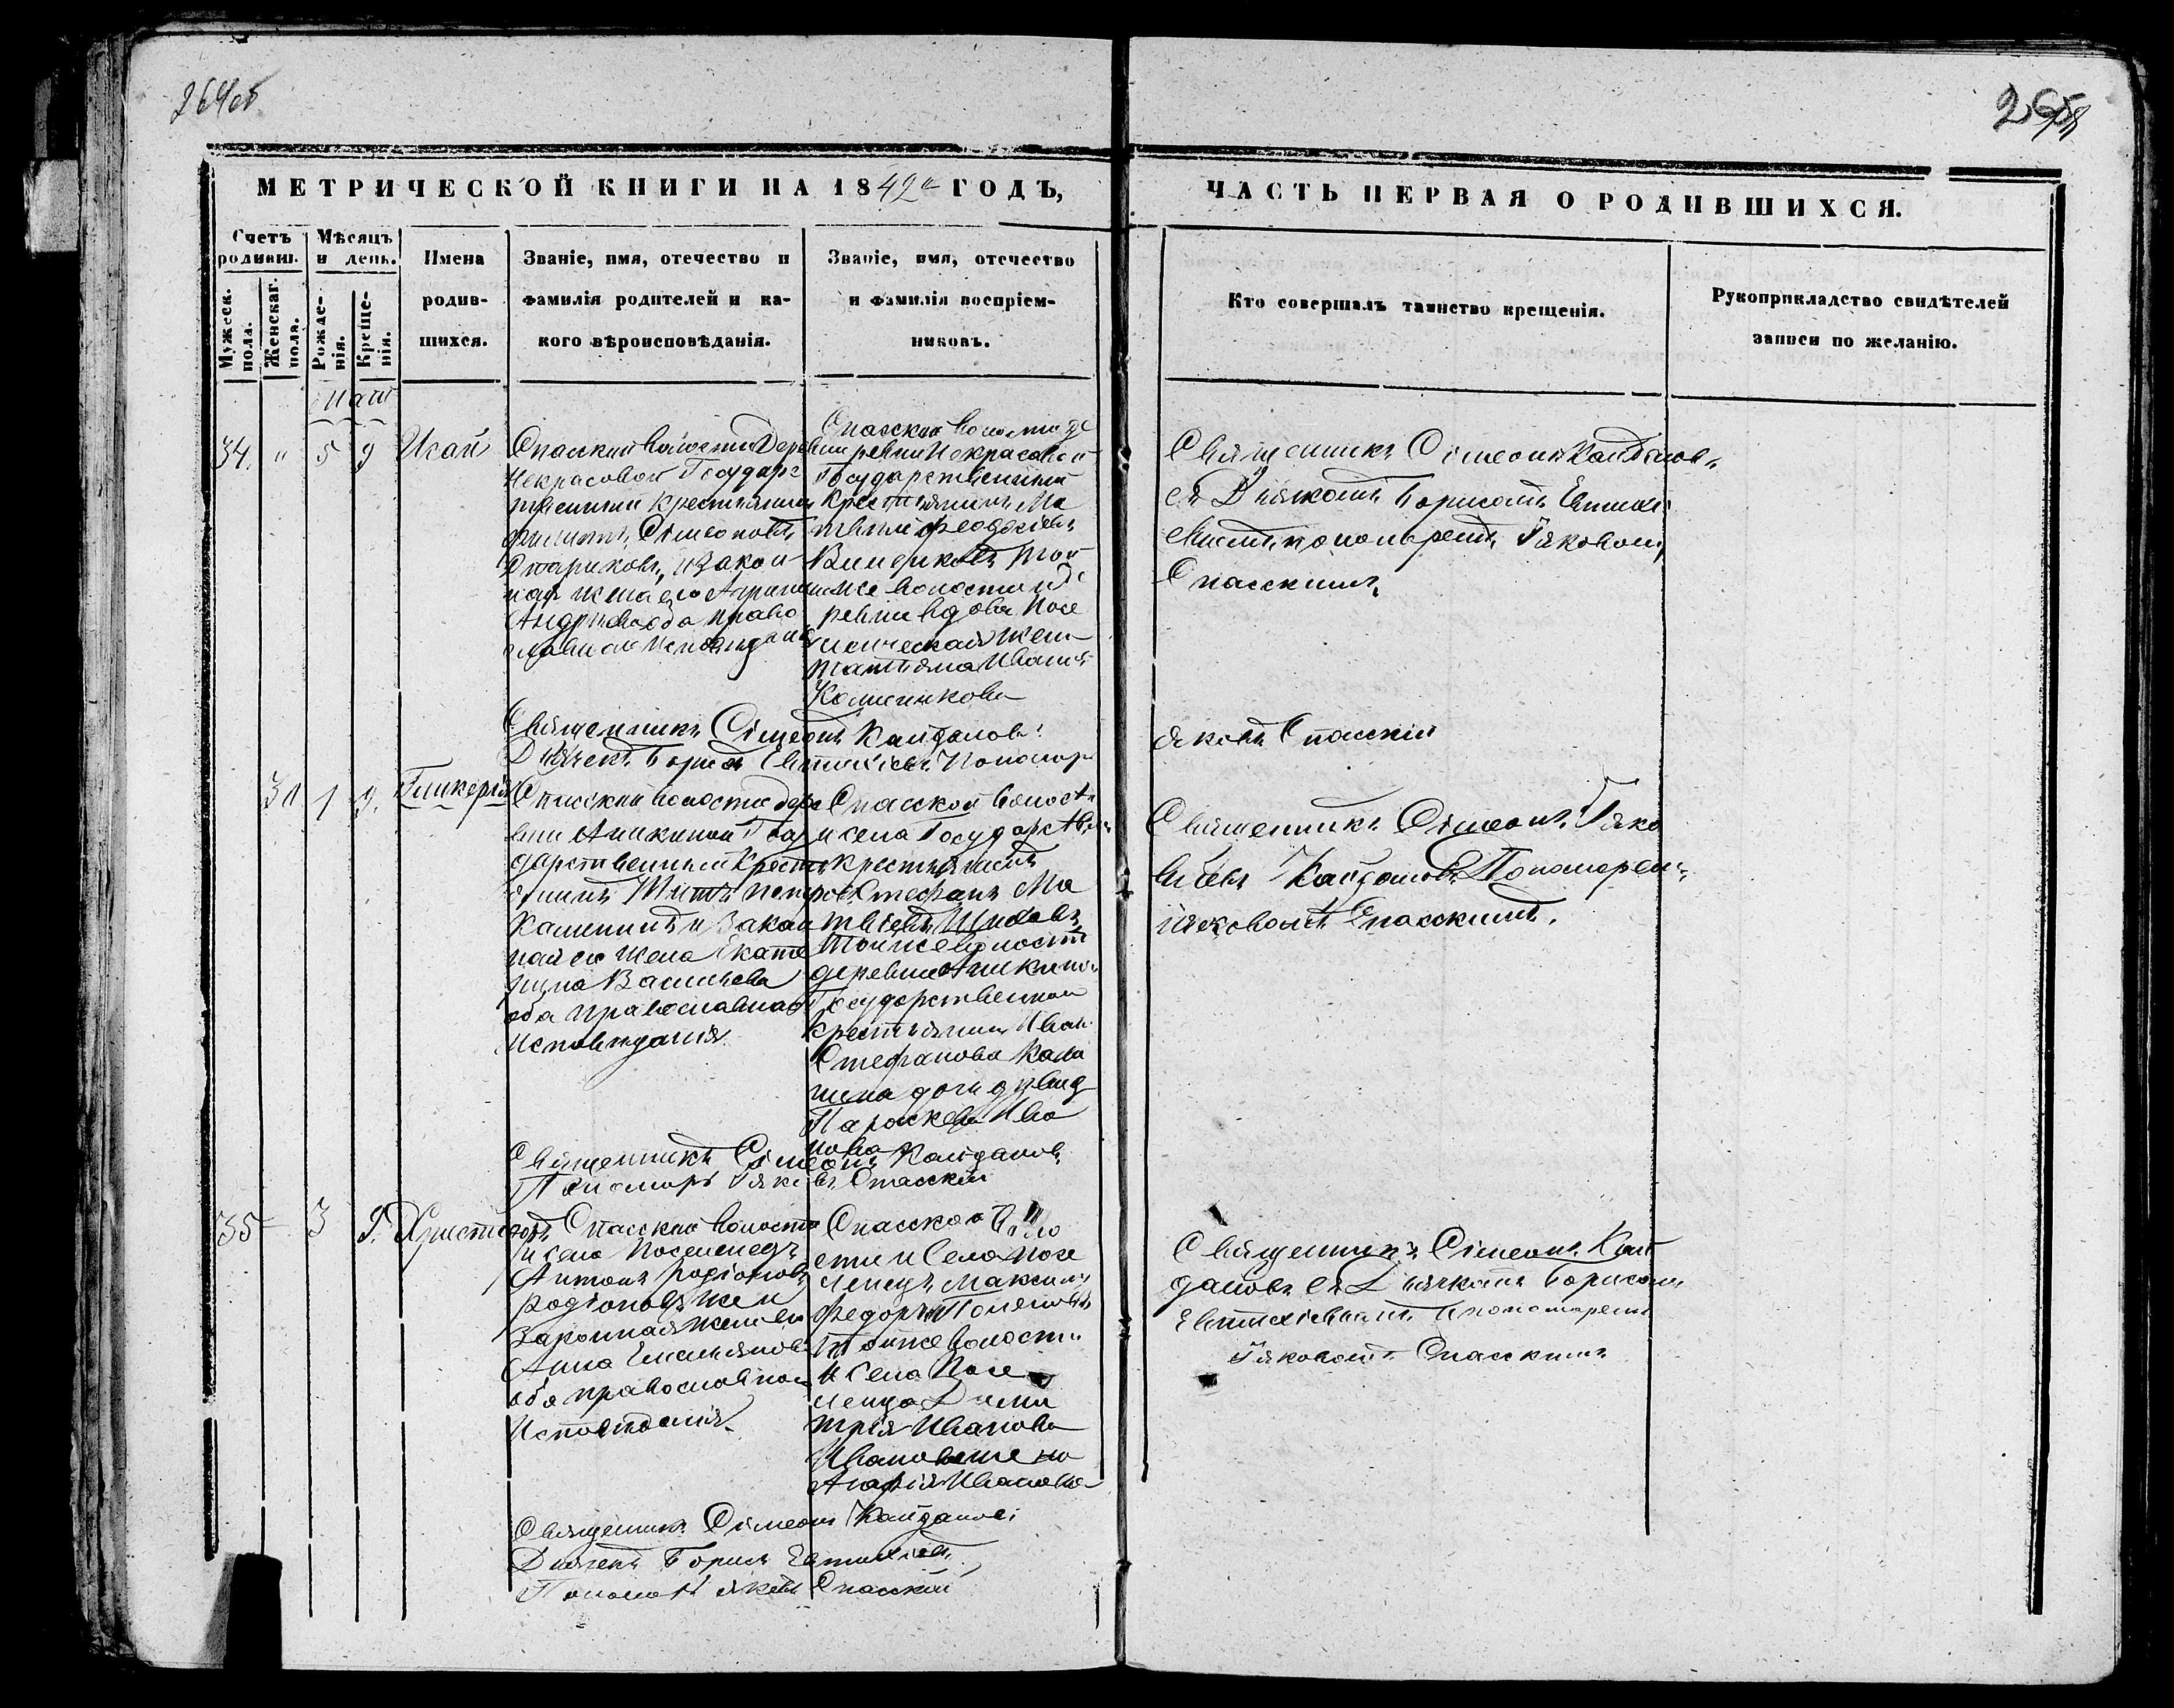 264об
265
МЕТРИЧЕСКОЙ КНИГИ НА 1842й ГОДЪ,
ЧАСТЬ ПЕРВАЯ О РОДИВШИХСЯ.
Счетъ родивш.
Мужеск. пола.
Женскаг. пола.
Мѣсяцъ и день.
Рожде-
нія.
Креще-
нія.
Имена
родив-
шихся.
Званіе, имя, отечество и
фамилія родителей и ка-
кого вѣроисповѣданія.
Званіе, имя, отечество
и фамилія воспріем-
никовъ.
Кто совершалъ таинство крещенія.
Рукоприкладство свидѣтелей
записи по желанію.
Маій
34. " 5 9 Исай
Спаский волости Дерев
Некрасовой Государс
твенный крестьянинъ
Филиппъ Симеоновъ
Стариковъ, и закон
ная жена его Ирина
Андреева оба право
славнаго исповѣданія
Спаской волости де
ревни Некрасовой
Государственный
крестьянинъ Ма
твей Феодосіевъ
той
же волости и де
ревни вдова Посе
ленческая жена
Татіяна Иванова
Священникъ Симеонъ Кайдаловъ
съ Дьячкомъ Борисомъ Евтихі
евымъ и пономаремъ Іяковомъ
Спасскимъ.
Священникъ Симеонъ Кайдаловъ
Дьячекъ Борисъ Евтихіевъ Пономарь
Яковъ Спасскій
30 1 9. Гликерія
Спасский волости дере
вни Аникиной Госу
дарственный кресть
янинъ Титъ Петровъ
Калининъ и закон
ная его жена Екате
рина Васильева
оба православнаго
исповѣданія
Спасской волости
и села Государствен
крестьянинъ
Стефанъ Ма
твѣевъ
тойже волости
деревни Аникиной
Государственнаго
крестьянина Ивана
Стефанова Кали
нина дочь дѣвица
Параскева Ива
нова
Священникъ Симеонъ Іяко
влевъ Кайдаловъ съ Пономаремъ
Іяковомъ Спасскимъ.
Священникъ Симеонъ Кайдаловъ
Пономарь Іяковъ Спасскій
35 3 9. Христофоръ
Спасский волости
и села Поселенецъ
Антонъ Родіоновъ
Родіоновъ и
законная жена его
Анна Емельянова
оба православнаго
исповѣданія
Спасской воло
сти и села посе
ленецъ Максимъ
Федоровъ
тойже волости
и села Посе
ленца Дими
трія Иванова
Иванова жена
Агафія Иванова
Священникъ Симеонъ Кай
даловъ съ Дьячкомъ Борисомъ
Евтихіевымъ и пономаремъ
Іяковомъ Спасскимъ
Священникъ Симеонъ Кайдаловъ
Дьячекъ Борисъ Евтихіевъ
Пономарь Яковъ Спасскій